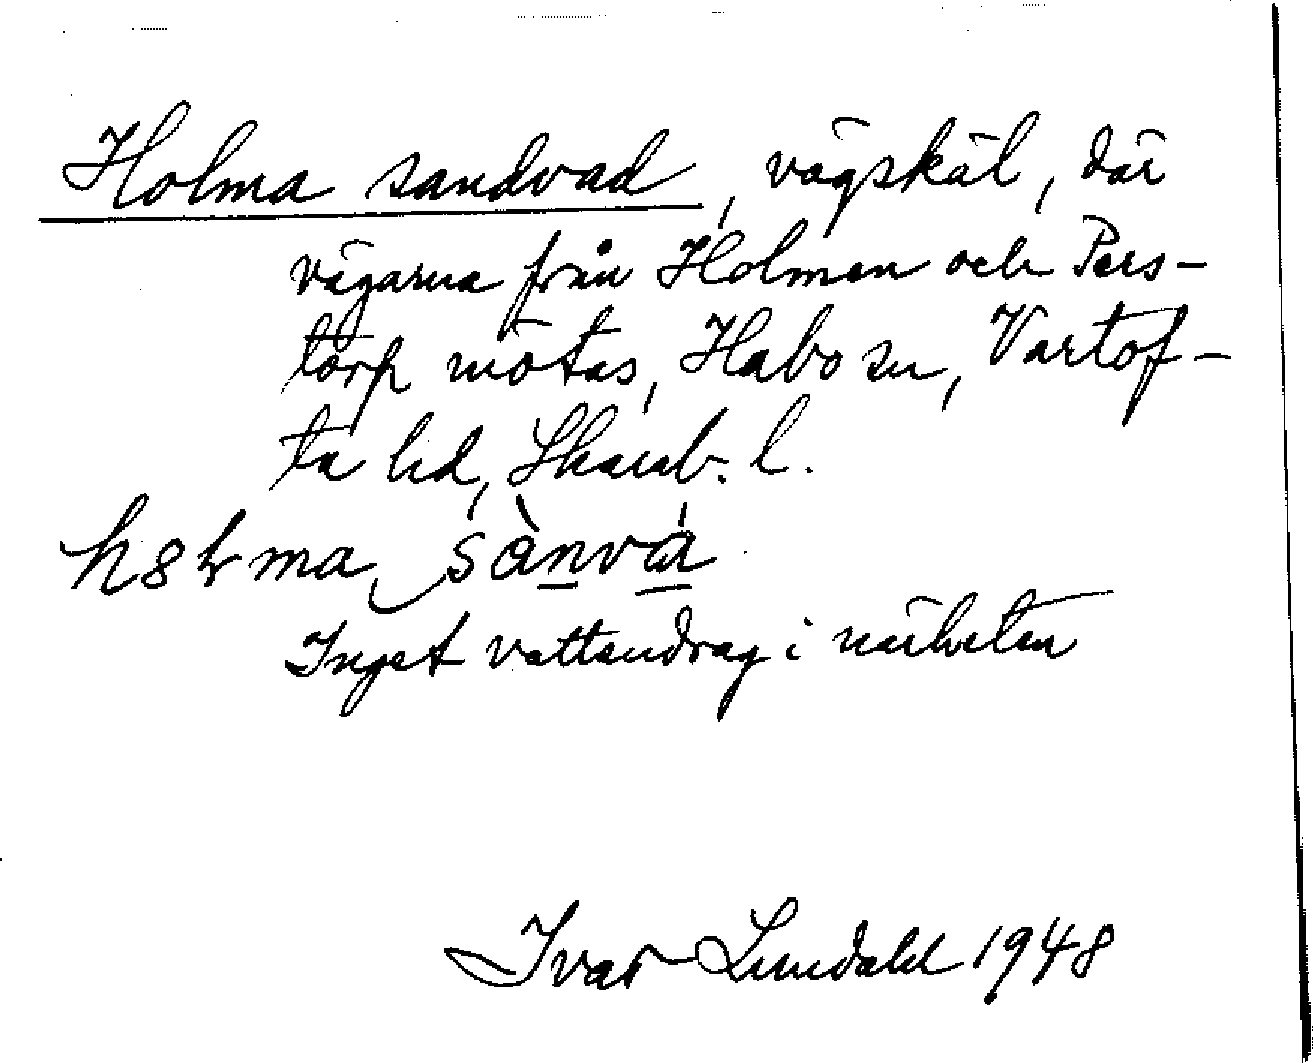 Holma sandvad, vägskäl, där
vägarna från Holmen och Pers-
torp mötas, Habo sn, Vartof-
ta hd, Skarab. l.
sànvá
Inget vattendrag i närheten
Ivar Lundahl 1948